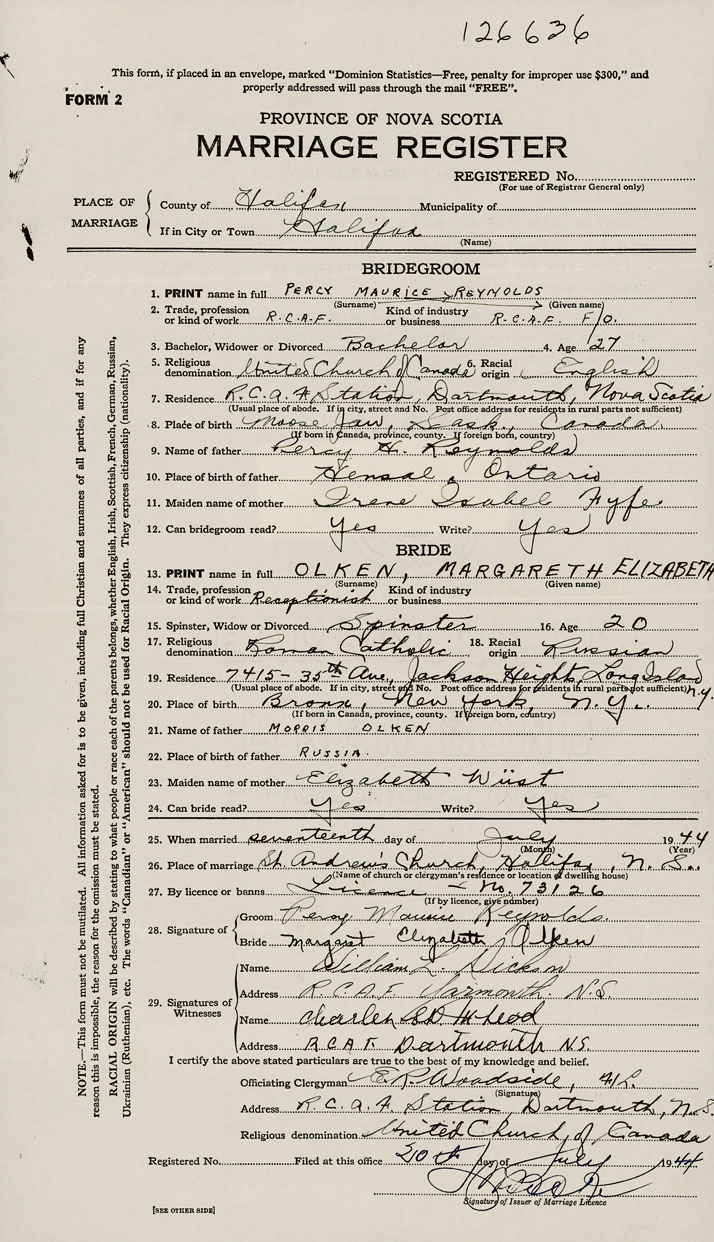 126636
This form, if placed in an envelope, marked "Dominion Statistics—Free, penalty for improper use $300," and
properly addressed will pass through the mail "FREE".
FORM 2
PROVINCE OF NOVA SCOTIA
MARRIAGE REGISTER
REGISTERED No.
(For use of Registrar General only)
PLACE OF MARRIAGE
County of Halifax Municipality of
If in City or Town Halifax
(Name)
BRIDEGROOM
1. PRINT name in full PERCY MAURICE REYNOLDS
(Surname) (Given name)
2. Trade, profession or kind of work R.C.A.F. Kind of industry or business R.C.A.F. F/O.
3. Bachelor, Widower or Divorced Bachelor 4. Age 27
5. Religious denomination United Church of Canada 6. Racial origin English
7. Residence R.C.A.F Station, Dartmouth, Nova Scotia
(Usual place of abode. If in city, street and No. Post office address for residents in rural parts not sufficient)
8. Place of birth Moose Jaw, Sask., Canada.
(If born in Canada, province, county. If foreign born, country)
9. Name of father Percy H. Reynolds
10. Place of birth of father Hensal, Ontario
11. Maiden name of mother Irene Isabel Fyfe.
12. Can bridegroom read? Yes Write? Yes
BRIDE
13. PRINT name in full OLKEN, MARGARETH ELIZABETH
(Surname) (Given name)
14. Trade, profession or kind of work Receptionist Kind of industry or business
15. Spinster, Widow or Divorced Spinster 16. Age 20
17. Religious denomination Roman Catholic 18. Racial origin Russian
19. Residence 7415-35th Ave., Jackson Heights, Long Island N.Y.
(Usual place of abode. If in city, street and No. Post office address for residents in rural parts not sufficient)
20. Place of birth Bronx, New York, N.Y.
(If born in Canada, province, county. If foreign born, country)
21. Name of father MORRIS OLKEN
22. Place of birth of father RUSSIA.
23. Maiden name of mother Elizabeth Wüst
24. Can bride read? Yes Write? Yes
25. When married seventeenth day of July 1944
(Month) (Year)
26. Place of marriage St. Andrew's Church, Halifax, N.S.
(Name of church or clergyman's residence or location of dwelling house)
27. By licence or banns Licence - No. 73126
(If by licence, give number)
28. Signature of
Groom Percy Maurice Reynolds.
Bride Margaret Elizabeth Olken
29. Signatures of Witnesses
Name William L. Dickson
Address R.C.A.F. Yarmouth. N.S.
Name Charles McLeod
Address R.C.A.F Dartmouth N.S.
I certify the above stated particulars are true to the best of my knowledge and belief.
Officiating Clergyman E.R. Woodside, F/L.
(Signature)
Address R.C.A.F Station, Dartmouth, N.S.
Religious denomination United Church of Canada
Registered No. Filed at this office 20th day of July 1944
Signature of Issuer of Marriage Licence
[SEE OTHER SIDE]
NOTE.—This form must not be mutilated. All information asked for is to be given, including full Christian and surnames of all parties, and if for any
reason this is impossible, the reason for the omission must be stated.
RACIAL ORIGIN will be described by stating to what people or race each of the parents belongs, whether English, Irish, Scottish, French, German, Russian,
Ukrainian (Ruthenian), etc. The words "Canadian" or "American" should not be used for Racial Origin. They express citizenship (nationality).